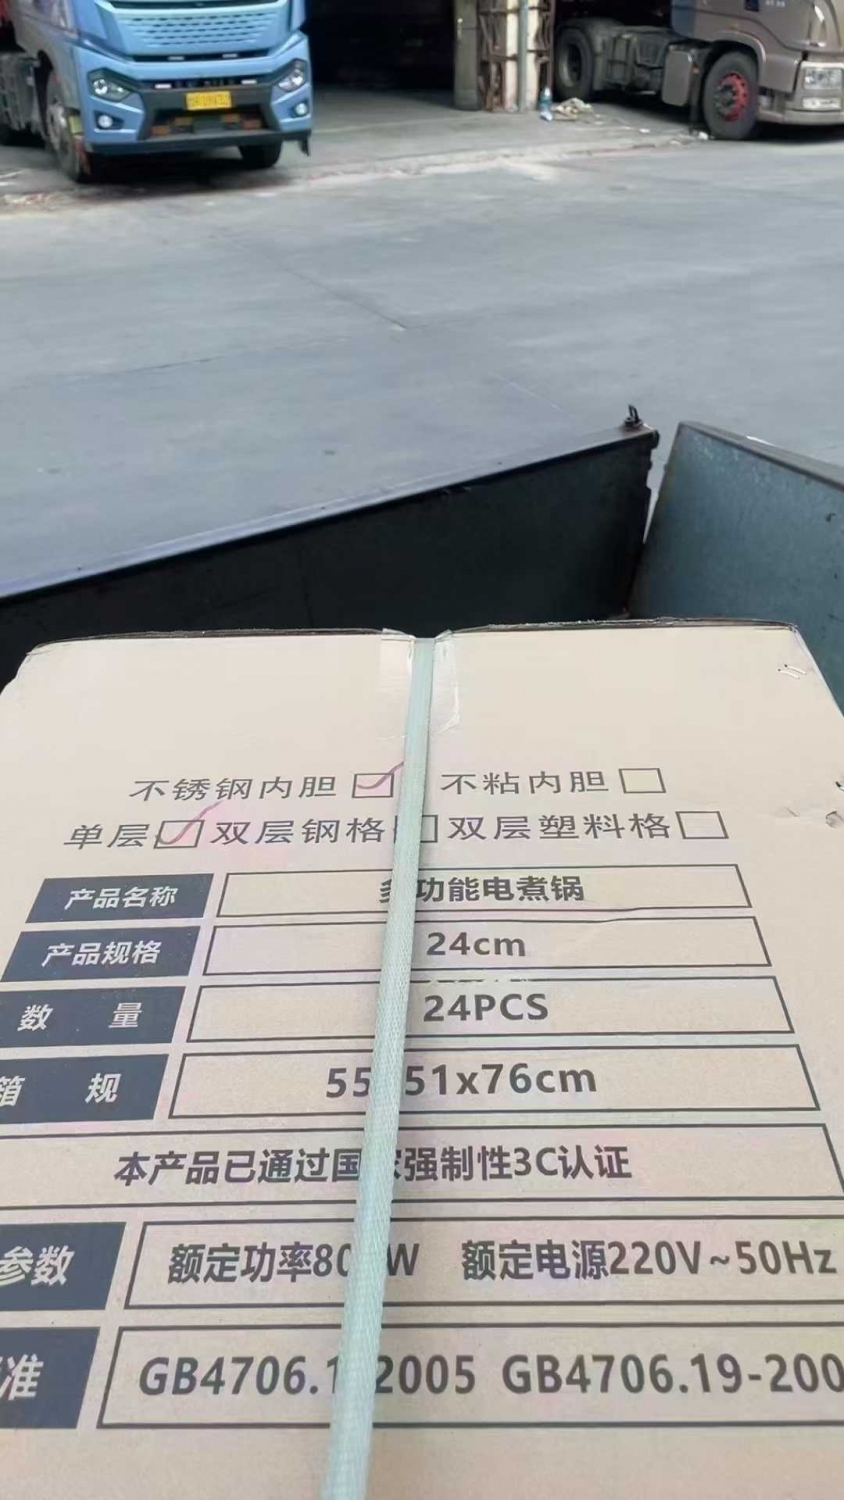 不锈钢内胆 不粘内胆
单层 双层钢格 双层塑料格
产品名称 功能电煮锅
产品规格 24cm
数 量 24PCS
箱 规 55 51x76cm
本产品已通过国家强制性3C认证
参数 额定功率80 W 额定电源220V~50Hz
准 GB4706.1 2005 GB4706.19-200